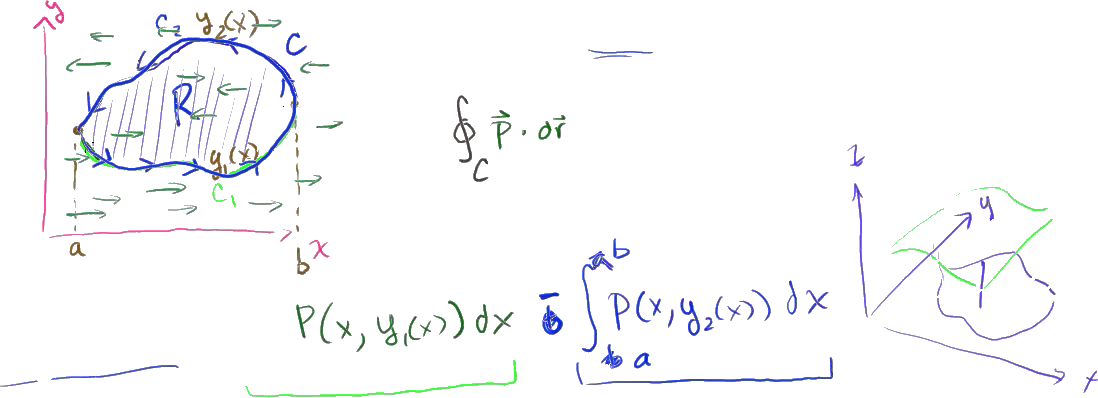 y
C₂ y₂(x)
C
R
y₁(x)
C₁
a
b
x
∮_C P⃗ · dr⃗
P(x, y₁(x)) dx − ∫_a^b P(x, y₂(x)) dx
z
y
x